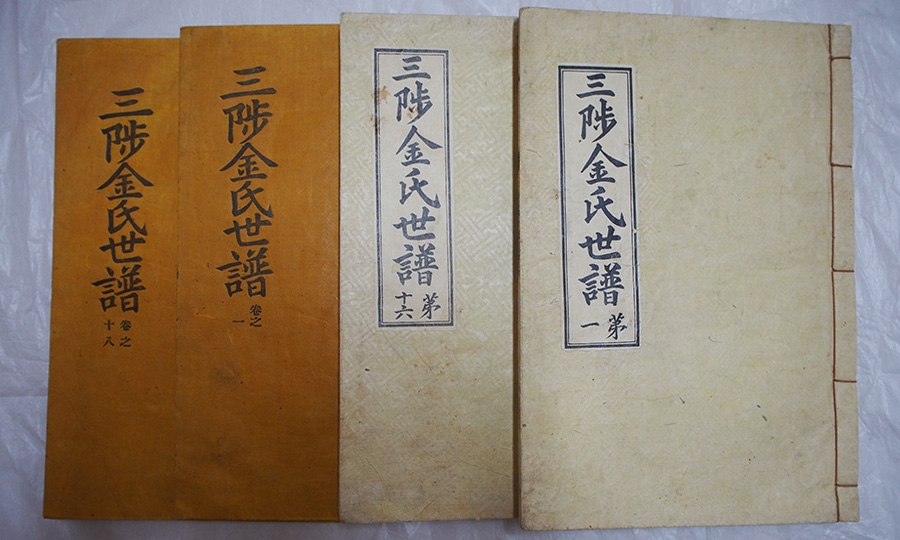 三陟金氏世譜
卷之
十八
三陟金氏世譜
卷之
一
三陟金氏世譜
第
十六
三陟金氏世譜
第
一